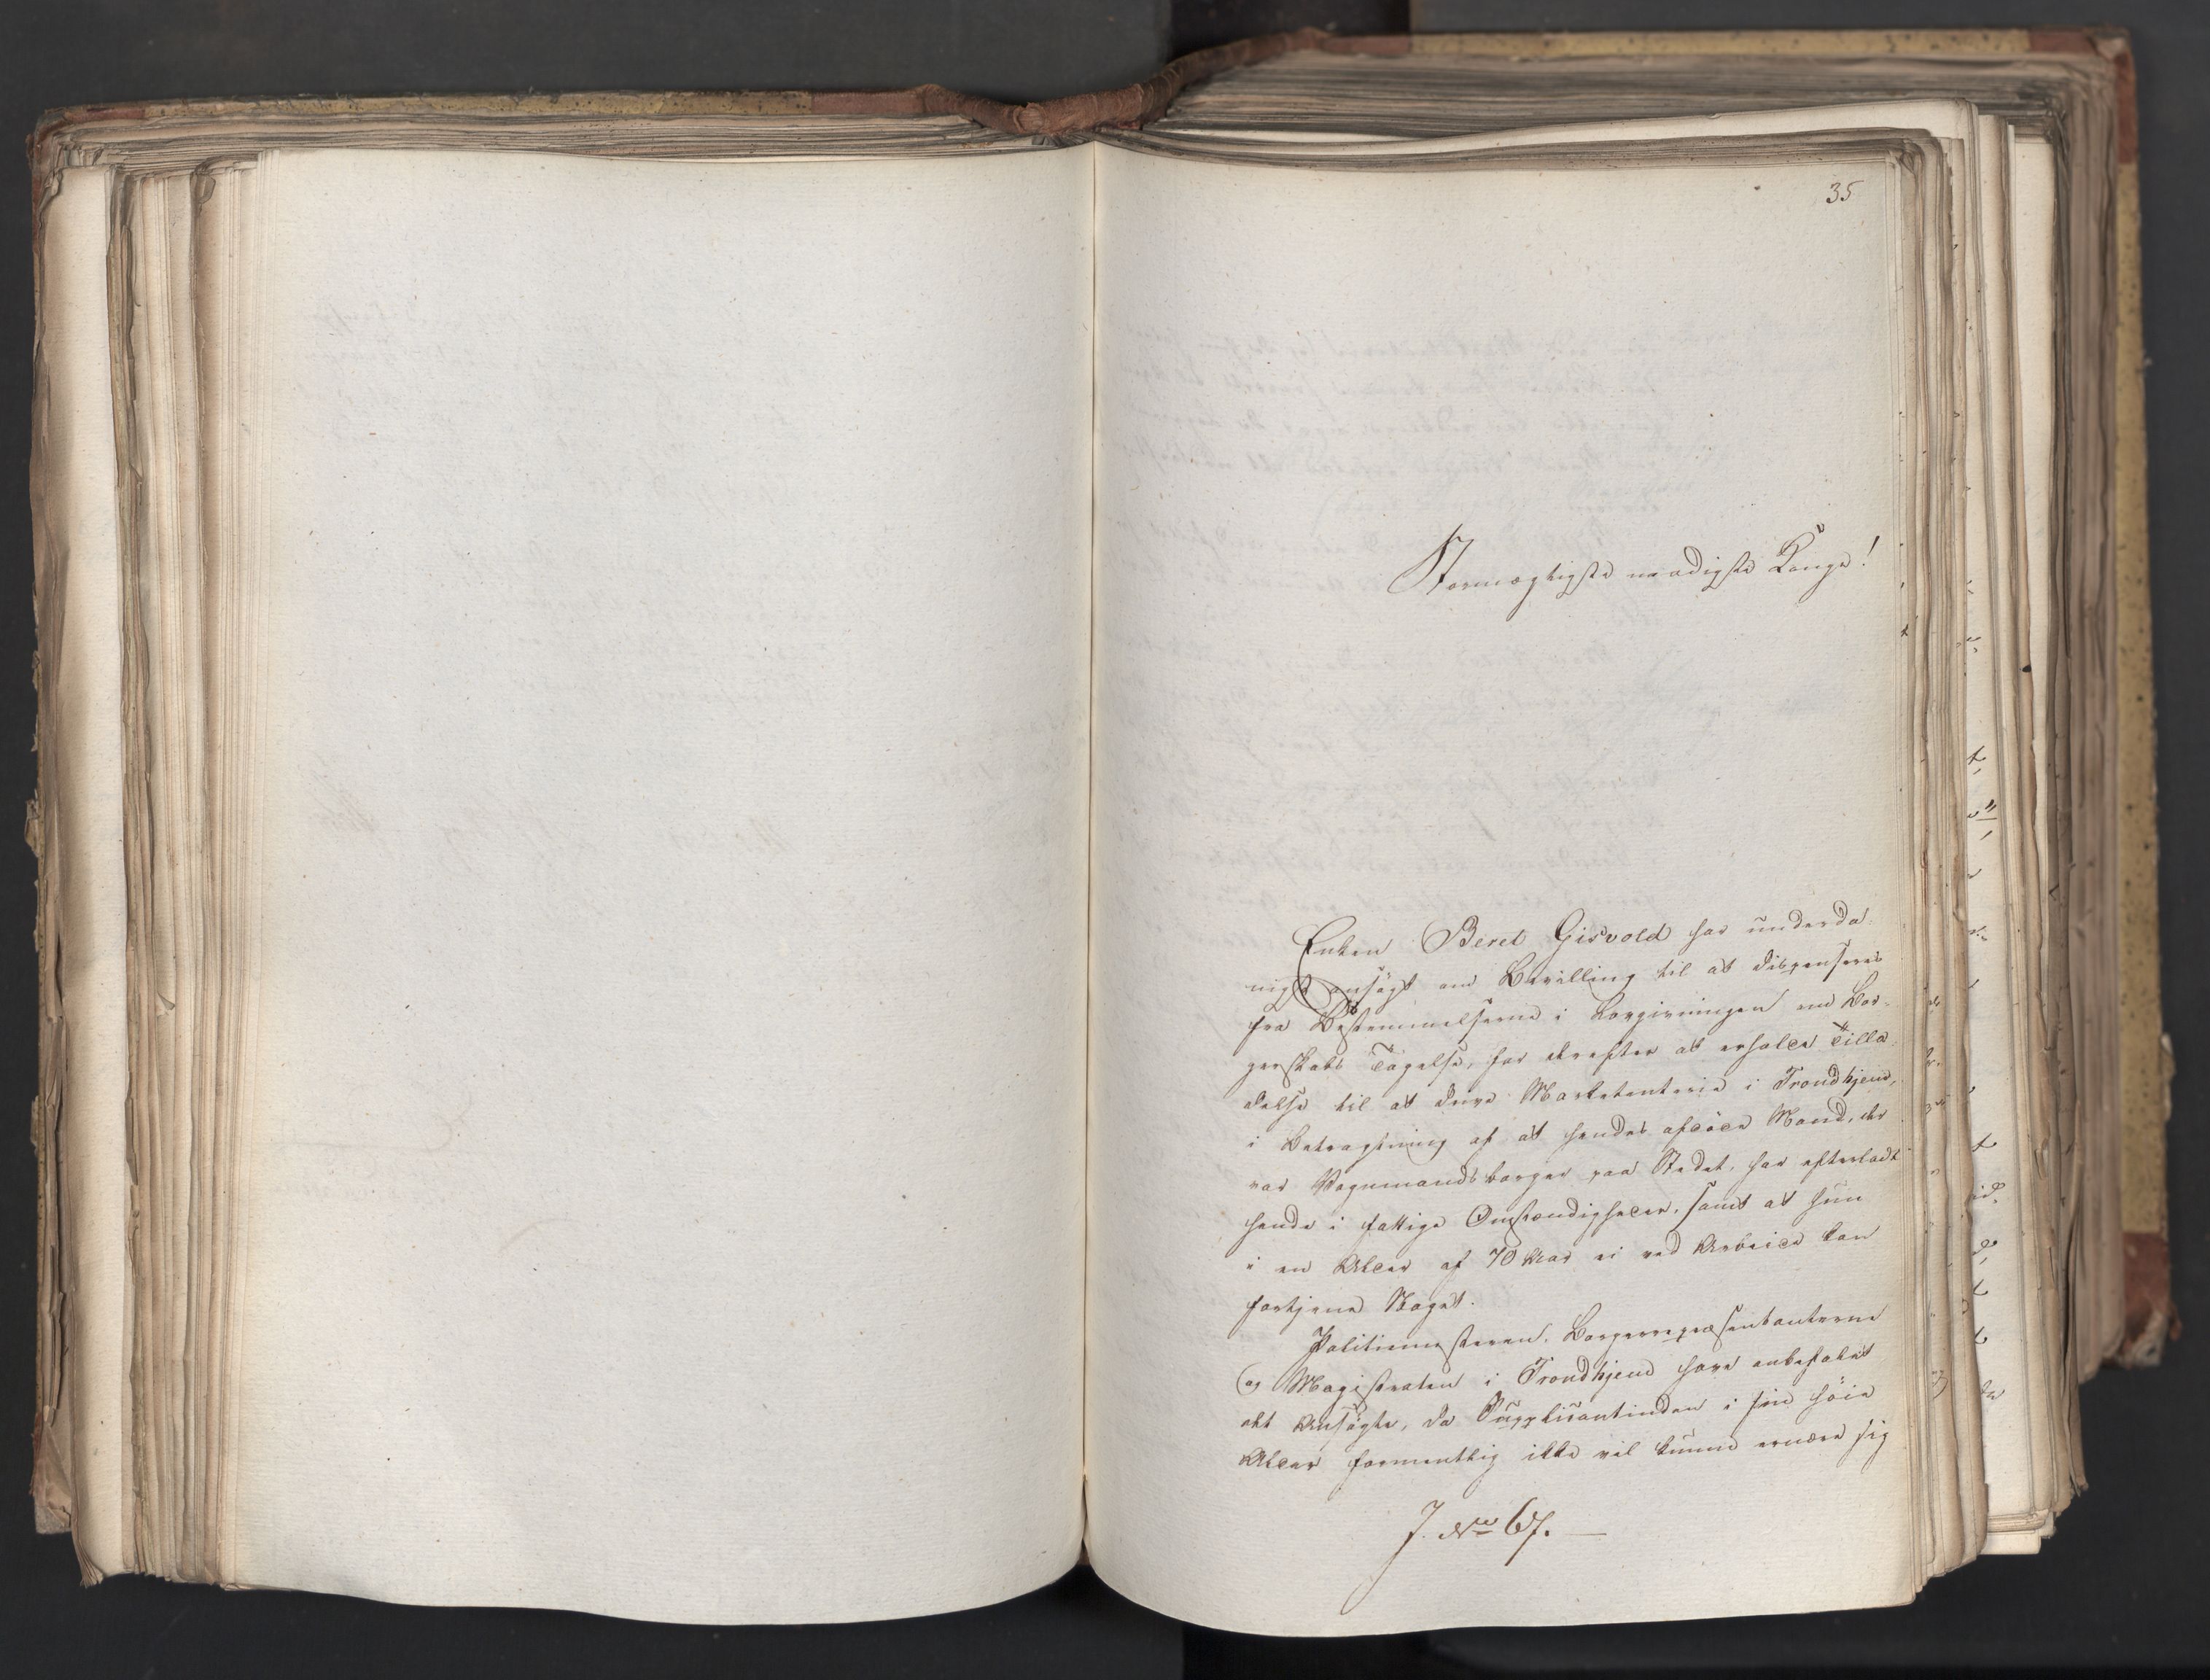 35
Stormægtigste naadigste Konge!
Enken Beret Gisvold har underda-
nigst ansøgt om Bevilling til at dispenseres
fra Bestemmelserne i Lovgivningen om Bor-
gerskabs Tagelse, for derefter at erholde Tilla-
delse til at drive Marketenterie i Trondhjem,
i Betragtning af at hendes afdøde Mand, der
var Vognmandsborger paa Stedet, har efterladt
hende i fattige Omstændigheder, samt at hun
i en Alder af 70 Aar ei ved Arbeide kan
fortjene Noget.
Politiemesteren, Borgerrepræsentanterne
og Magistraten i Trondhjem have anbefalet
det Ansøgte, da Supplicantinden i sin høie
Alder formentlig ikke vil kunne ernære sig
J. No 67.